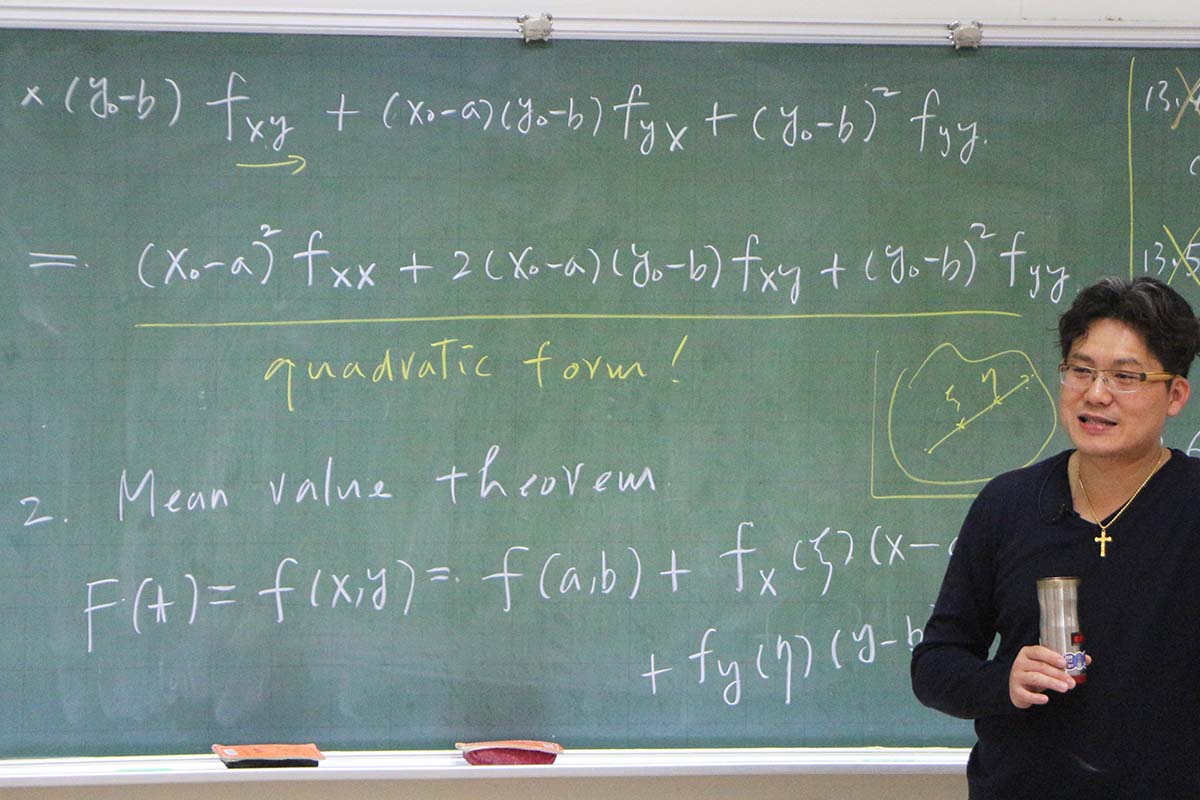 × (y₀-b) f_xy + (x₀-a)(y₀-b) f_yx + (y₀-b)² f_yy.
= (x₀-a)² f_xx + 2(x₀-a)(y₀-b) f_xy + (y₀-b)² f_yy.
quadratic form!
ξ η
2. Mean value theorem
F(t) = f(x,y) = f(a,b) + f_x(ξ)(x-
+ f_y(η)(y-b
13.
13.5